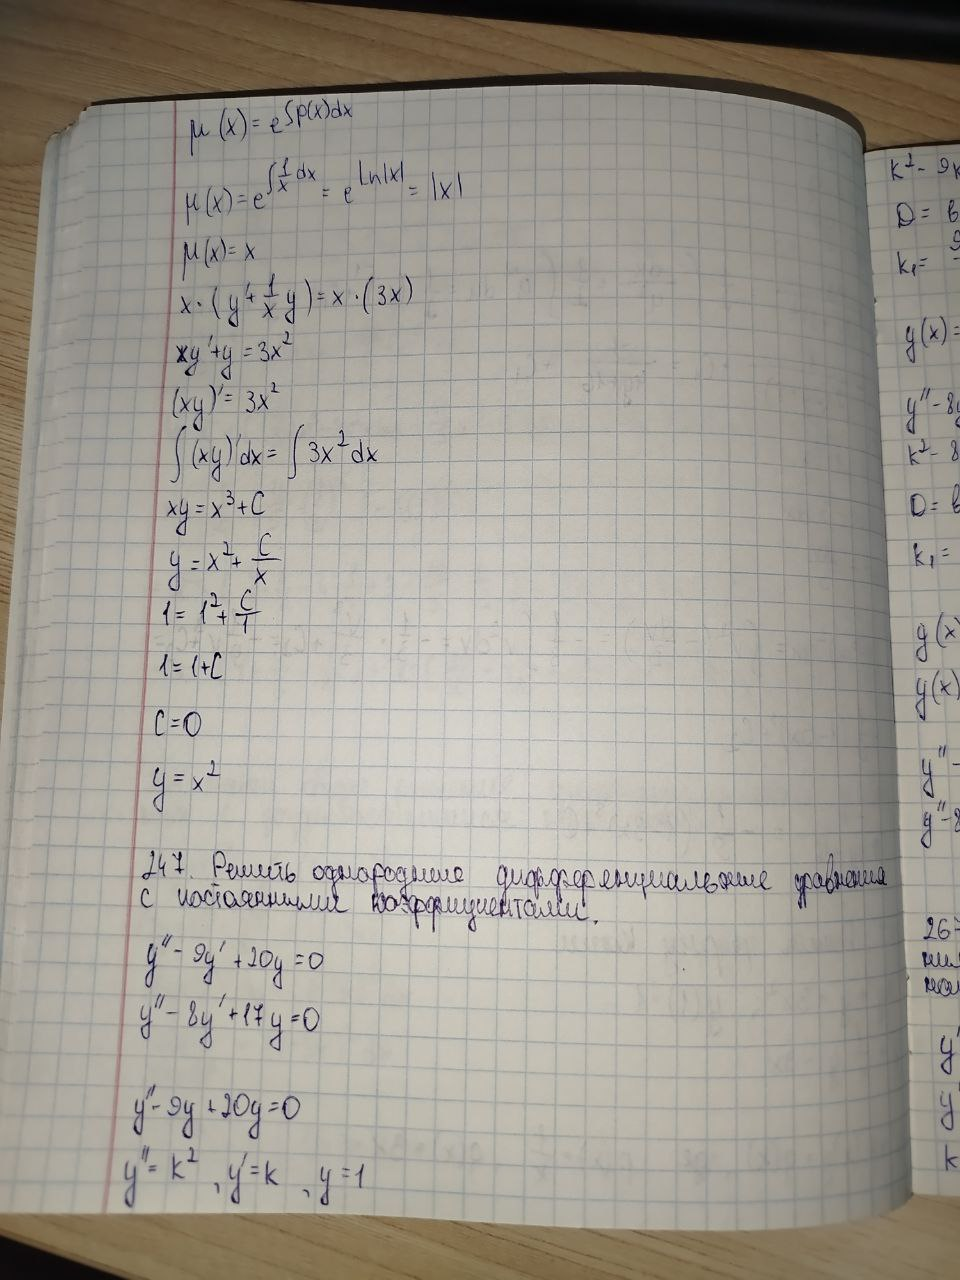 μ(x) = e^∫p(x)dx
μ(x) = e^∫1/x dx = e^Ln|x| = |x|
μ(x) = x
x · (y' + 1/x y) = x · (3x)
xy' + y = 3x²
(xy)' = 3x²
∫(xy)'dx = ∫3x²dx
xy = x³ + C
y = x² + C/x
1 = 1² + C/1
1 = 1 + C
C = 0
y = x²
247. Решить однородные дифференциальные уравнения
с постоянными коэффициентами.
y'' - 9y' + 20y = 0
y'' - 8y' + 17y = 0
y'' - 9y + 20y = 0
y'' = k², y' = k, y = 1
k² - 9k
D = b
k₁ =
y(x) =
y'' - 8y
k² - 8
D = b
k₁ =
y(x)
y(x)
y'' -
y'' - 8
267
y'
y'
k